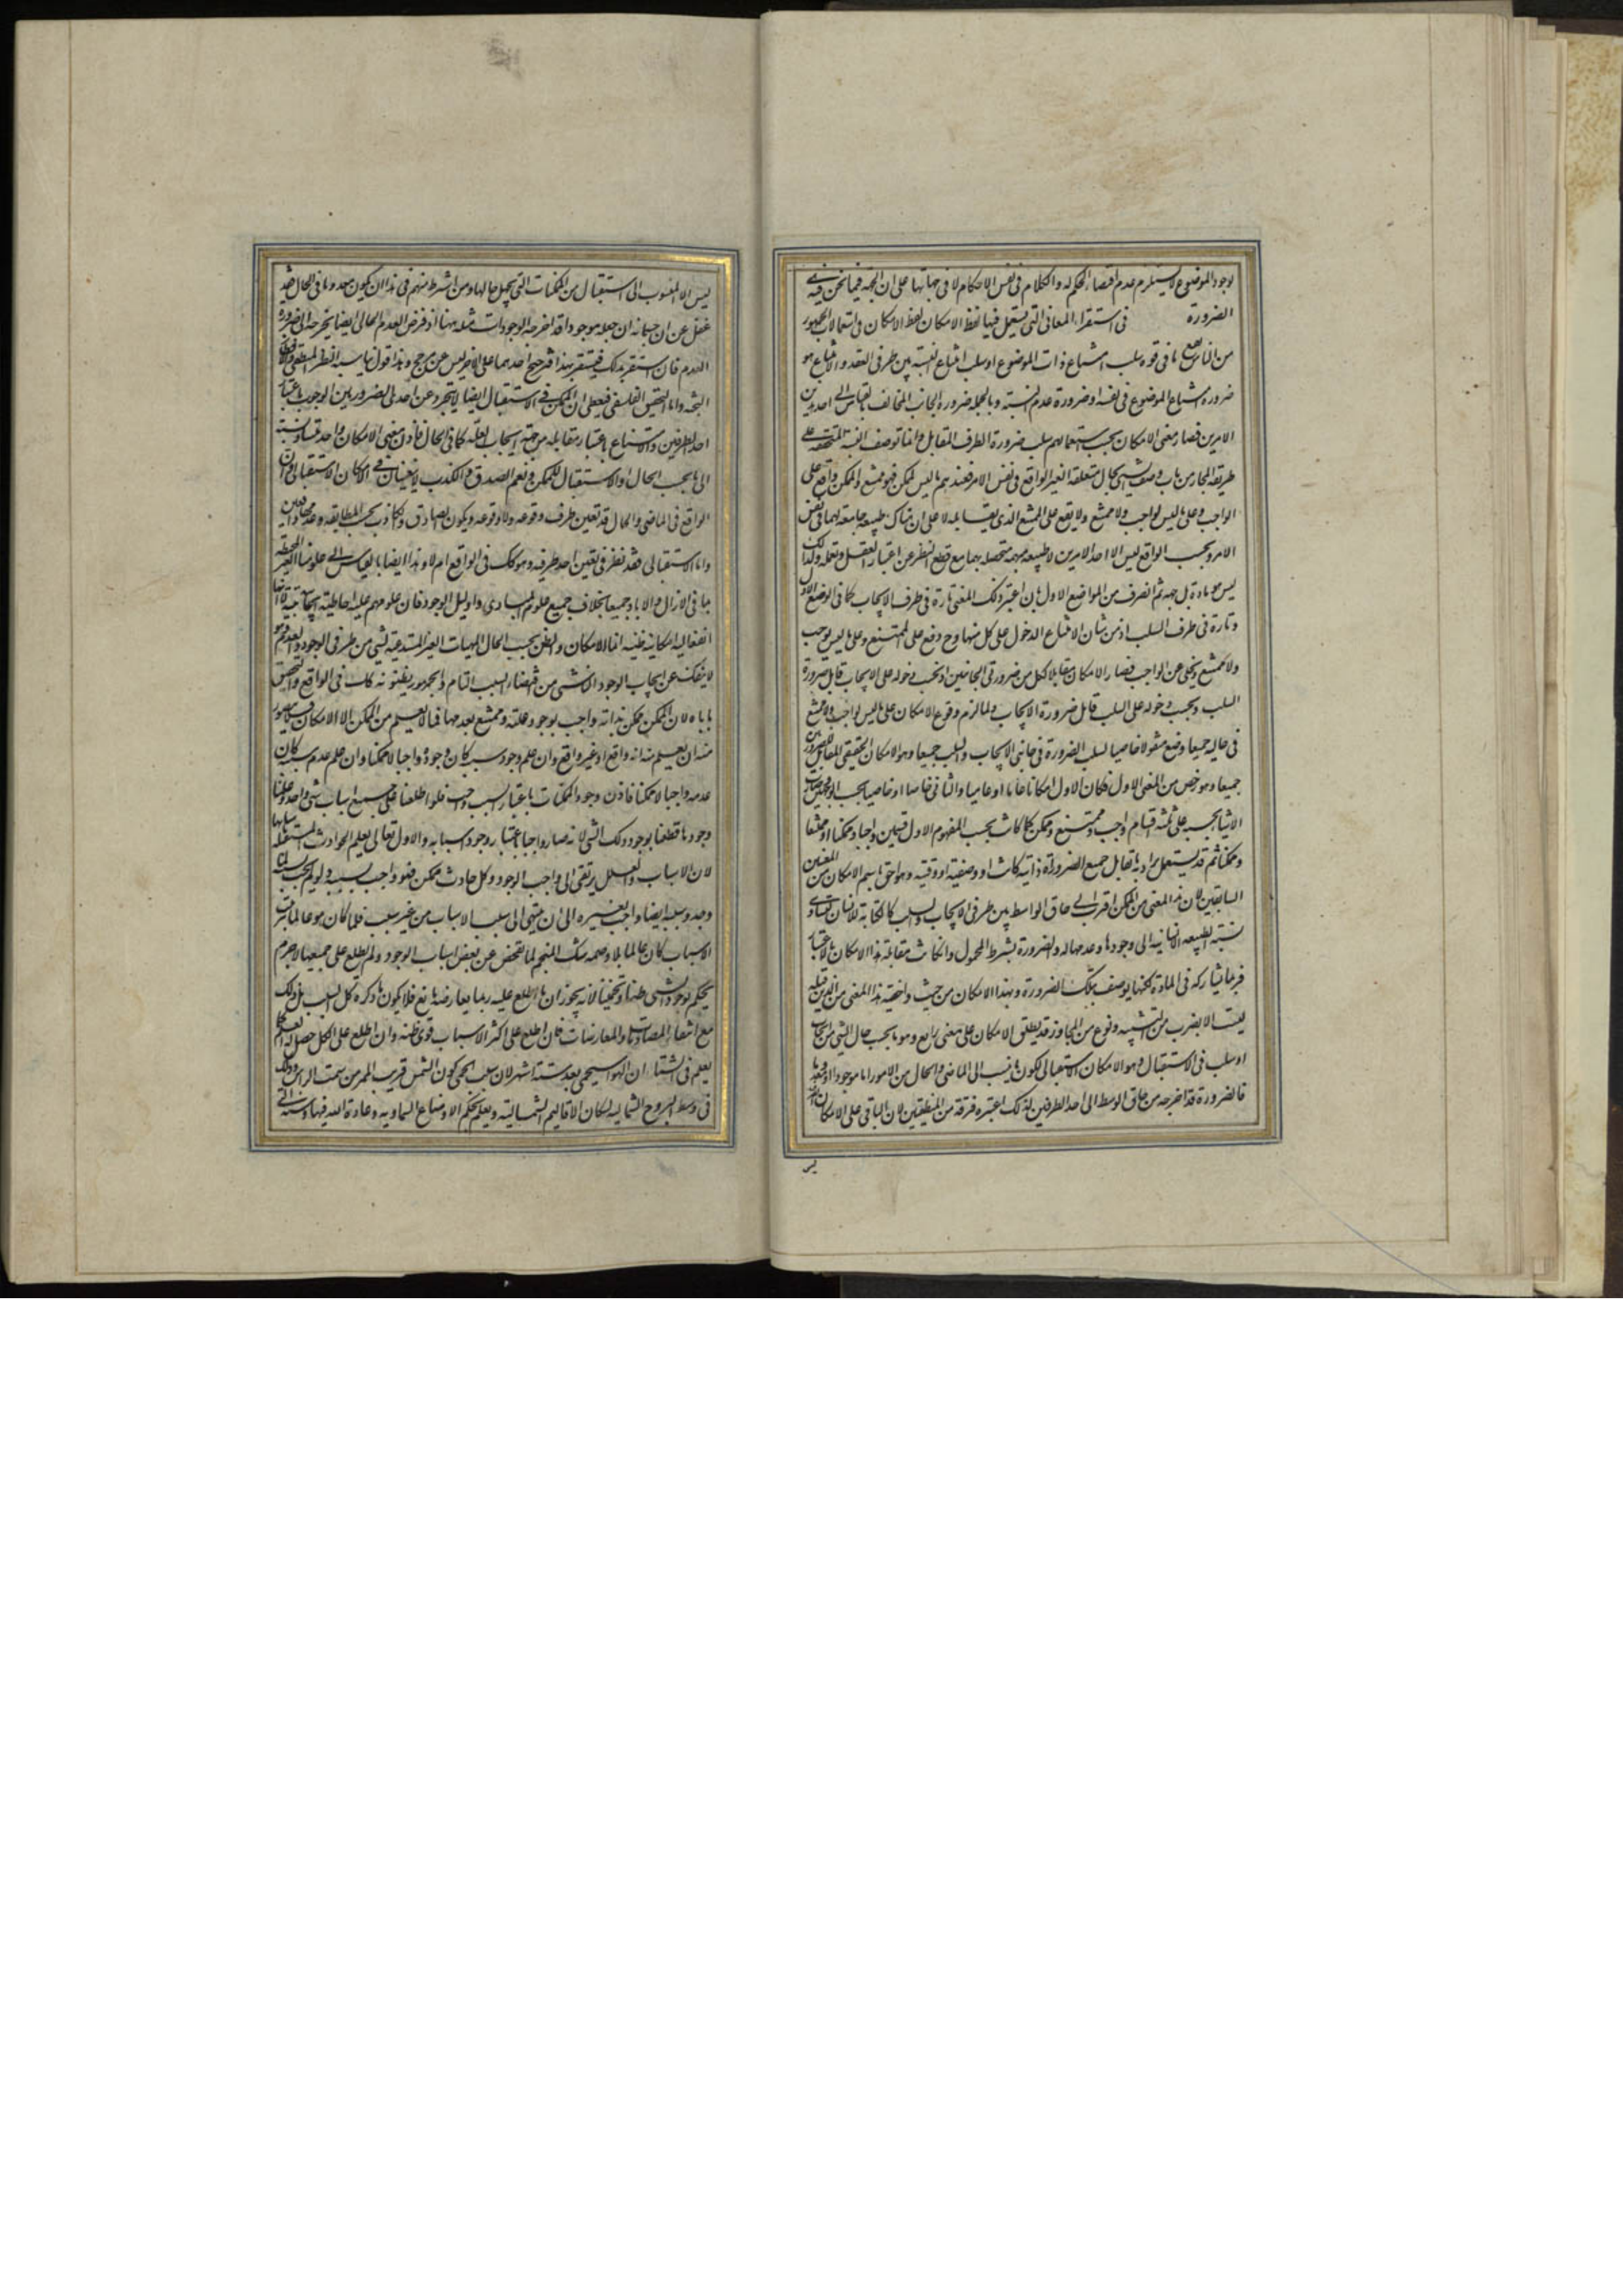 لوجود الموضوع لا يستلزم عدم اقتضاء الحكم له والكلام في نفس الاحكام لا في جهاتها على ان الجهة فيما نحن فيه هي
الضرورة في استقراء المعاني التي يستعمل فيها لفظ الامكان لفظ الامكان في استعمالات الجمهور
من الناس يقع ما في قوة سلب امتناع ذات الموضوع او سلب امتناع النسبة بين طرفي العقد والامتناع هو
ضرورة امتناع الموضوع في نفسه او ضرورة عدم النسبة وبالجملة ضرورة الجانب المخالف بالقياس الى احد هذين
الامرين فصار معنى الامكان بحسب استعمالهم سلب ضرورة الطرف المقابل وانما توصف النسبة المتحققة على
طريقة المجاز من باب وصف الشيء بحال متعلقه الغير الواقع في نفس الامر فعندهم ما ليس بممكن فهو ممتنع والممكن واقع على
الواجب وعلى ما ليس بواجب ولا ممتنع ولا يقع على الممتنع الذي يقابله لا على ان هناك طبيعة جامعة لهما في نفس
الامر وبحسب الواقع ليس الا احد الامرين لا طبيعة مبهمة متحصلة بهما مع قطع النظر عن اعتبار العقل وتعمله ولذلك
ليس هو مادة بل جهة ثم انصرف من المواضع الاول بان اعتبر ذلك المعنى تارة في طرف الايجاب كما في الوضع الاول
وتارة في طرف السلب اذ من شان الامتناع الدخول على كل منهما وح وقع على الممتنع وعلى ما ليس بواجب
ولا ممتنع ويخلى عن الواجب فصار الامكان مقابلا لكل من ضرورتي الجانبين اذ بحسب دخوله على الايجاب قابل ضرورة
السلب وبحسب دخوله على السلب قابل ضرورة الايجاب ولما لزم وقوع الامكان على ما ليس بواجب ولا ممتنع
في حاليه جميعا وضع منقولا خاصيا لسلب الضرورة في جانبي الايجاب والسلب جميعا وهو الامكان الحقيقي المقابل للضرورتين
جميعا وهو اخص من المعنى الاول فكان الاول امكانا عاما او عاميا والثاني خاصا او خاصيا بحسب الوجهين فصارت
الاشياء بحسبه على ثلثة اقسام واجب وممتنع وممكن كما كانت بحسب المفهوم الاول قسمين واجبا وممكنا او ممتنعا
وممكنا ثم قد يستعمل ويراد به ما يقابل جميع الضرورات ذاتية كانت او وصفية او وقتية وهو احق باسم الامكان من المعنيين
السابقين لان هذا المعنى من الممكن اقرب الى حاق الوسط بين طرفي الايجاب والسلب كالكتابة للانسان لتساوي
نسبة الطبيعة الانسانية الى وجودها وعدمها له والضرورة بشرط المحمول وان كانت مقابلة لهذا الامكان بالاعتبار
فربما يشاركه في المادة لكنها بوصف تلك الضرورة وبهذا الامكان من حيث واخصية هذا المعنى من الذين قبله
ليست الا بضرب من التشبيه ونوع من المجاز وقد يطلق الامكان على معنى رابع وهو ما بحسب حال الشيء من ايجاب
او سلب في الاستقبال وهو الامكان الاستقبالي لكون ما ينسب الى الماضي والحال من الامور اما موجودا او معدوما
فالضرورة قد اخرجته من حاق الوسط الى احد الطرفين لذلك اعتبره فرقة من المنطقيين لان الباقي على الامكان الصرف
ليس الا المنسوب الى استقبال من الممكنات التي يجهل حالها ومن اشترط منهم في هذا ان يكون معدوما في الحال فقد
غفل عن ان حسبانه ان جعله موجودا قد اخرجه الى وجوب الوجود مثله ههنا اذ فرض العدم الحالي ايضا يخرجه الى ضرورة
العدم فان استضر بذلك فيستضر بهذا فترجيح احدهما على الاخر ليس عن مرجح وهذا قول يناسبه النظر المنطقي
واما التحقيق الفلسفي فيعطي ان الممكن في الاستقبال ايضا لا يتجرد عن احدى الضرورتين الوجوب باعتبار
احد الطرفين والامتناع باعتبار مقابله من جهة ايجاب العلة كما في الحال فاذن معنى الامكان واحد تتساوى نسبته
الى ما بحسب الحال او الاستقبال للممكن ونعم الصدق والكذب لا يتعينان في الامكان الاستقبالي فان
الواقع في الماضي والحال قد تعين طرف وقوعه ولا وقوعه ويكون الصادق والكاذب بحسب المطابقة وعدمها واقعين
واما الاستقبالي فقد نظر في تعين احد طرفيه وهو كك في الواقع ام لا وهذا ايضا بالقياس الى علومنا الغير المحيطة
بما في الازال والاباد جميعا بخلاف جميع علوم المبادي واوايل الوجود فان علومهم علية احاطية ايجابية لا
انفعالية امكانية ظنية انما الامكان والظن بحسب الحال الماهيات الغير المستدعية لشيء من طرفي الوجود والعدم وهو
لا ينفك عن ايجاب الوجود الناشي من اقتضاء السبب التام والجمهور يظنونه كك في الواقع والتحقيق
ياباه لان الممكن ممكن بذاته واجب بوجود علته وممتنع بعدمها فما لا يعلم من الممكن الا الامكان فلا يتصور
منه ان يعلم منه انه واقع او غير واقع وان علم وجود سببه كان وجوده واجبا لا ممكنا وان علم عدم سببه كان
عدمه واجبا لا ممكنا فاذن وجود الممكنات باعتبار السبب واجب فلو اطلعنا على جميع اسباب شيء واحد وعلمنا
وجودها قطعنا بوجود ذلك الشيء لانه صار واجبا باعتبار وجود اسبابه والاول تعالى يعلم الحوادث المستقبلة باسبابها
لان الاسباب والعلل يرتقي الى واجب الوجود وكل حادث ممكن فهو واجب بسببه ولو لم يجب بسببه لما
وجد وسببه ايضا واجب بغيره الى ان ينتهي الى سبب الاسباب من غير سبب فلما كان هو عالما بترتب
الاسباب كان عالما بلا وصمة شك المنجم لما تفحص عن بعض اسباب الوجود ولم يطلع على جميعها لا جرم
يحكم بوجود الشيء ظنا وتخمينا لانه يجوز ان ما اطلع عليه ربما يعارضه مانع فلا يكون ما ذكره كل السبب بل ذلك
مع انتفاء المصادمات والمعارضات فان اطلع على اكثر الاسباب قوي ظنه وان اطلع على الكل حصل له العلم كما
يعلم في الشتاء ان الهواء سيحمى بعد ستة اشهر لان سبب الحمى كون الشمس قريب الممر من سمت الراس وذلك
في وسط البروج الشمالية لسكان الاقاليم الشمالية ويعلم بحكم الاوضاع السماوية وعادة الله فيها وسنته التي